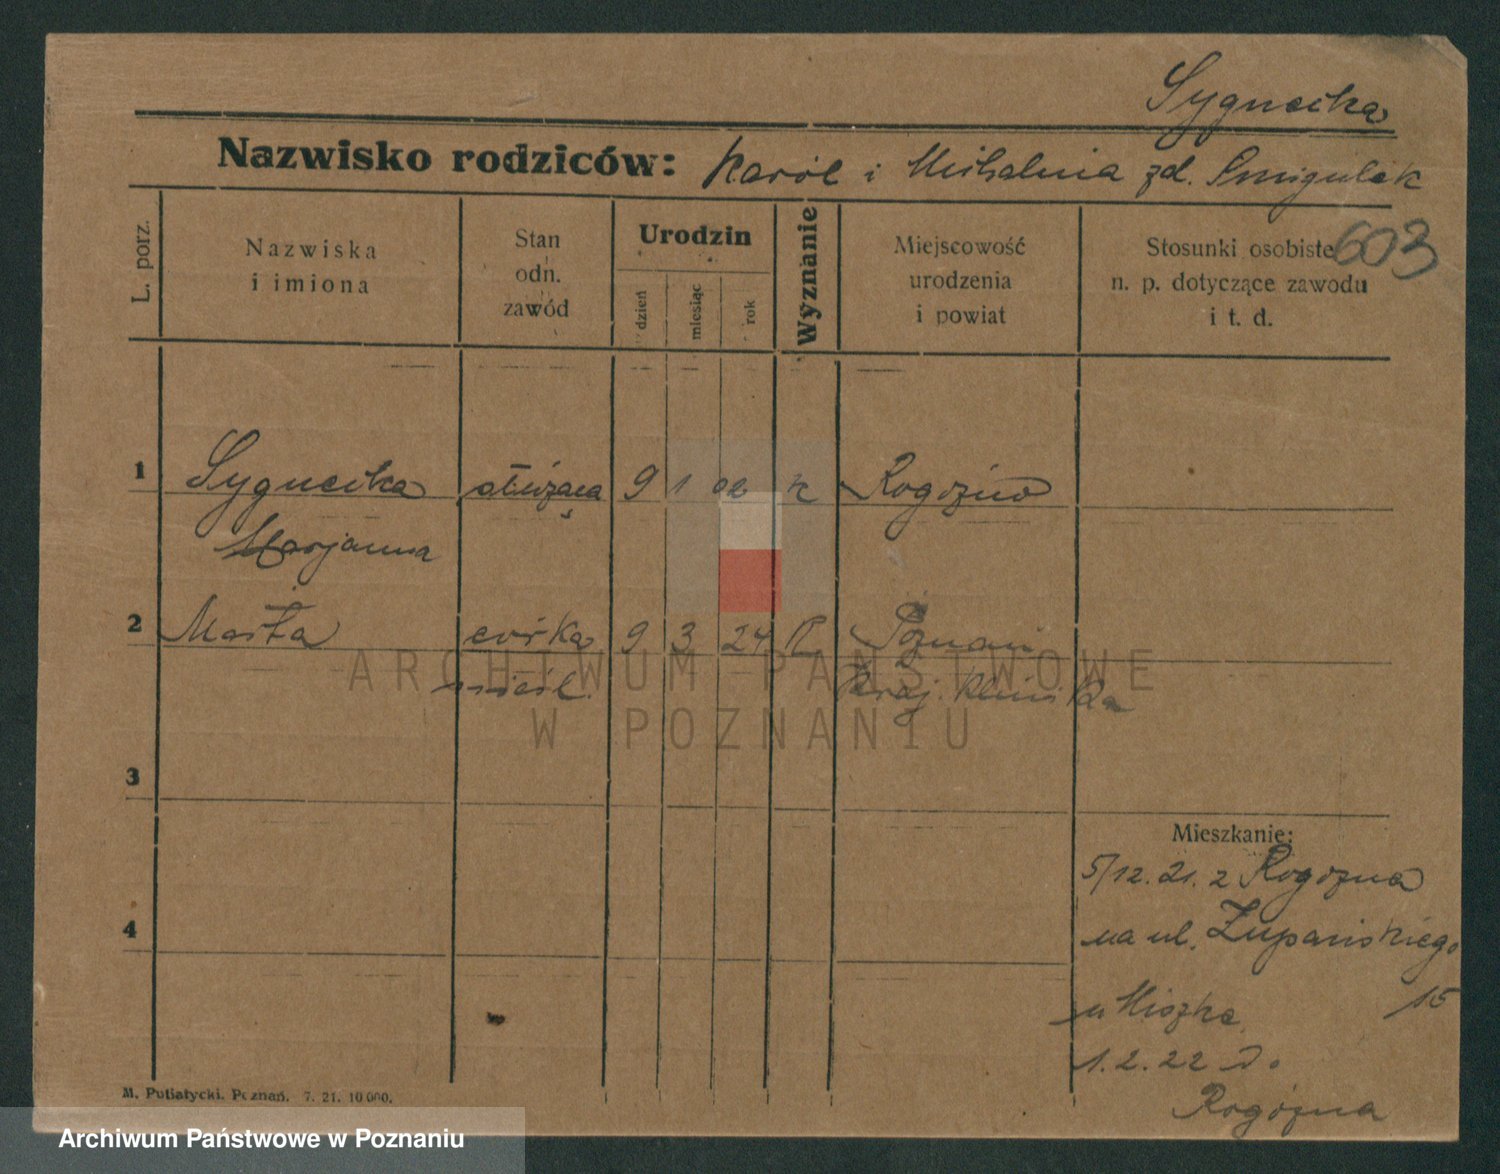 Sygnecka
Nazwisko rodziców: Karól i Michalina zd. Śmigielak
603
L. porz.
Nazwiska
i imiona
Stan
odn.
zawód
Urodzin
dzień
miesiąc
rok
Wyznanie
Miejscowość
urodzenia
i powiat
Stosunki osobiste
n. p. dotyczące zawodu
i t. d.
1 Sygnecka służąca 9 1 02 K Rogoźno
Marjanna
2 Marta córka 9 3 24 R Poznań
nieśl. Kraj. Klinika
3
4
Mieszkanie:
5/12.21. z Rogozna
na ul. Żupańskiego
15
u Miszka
1.2.22 do
Rogozna
M. Putiatycki. Poznań. 7. 21. 10 000.
ARCHIWUM PAŃSTWOWE
W POZNANIU
Archiwum Państwowe w Poznaniu